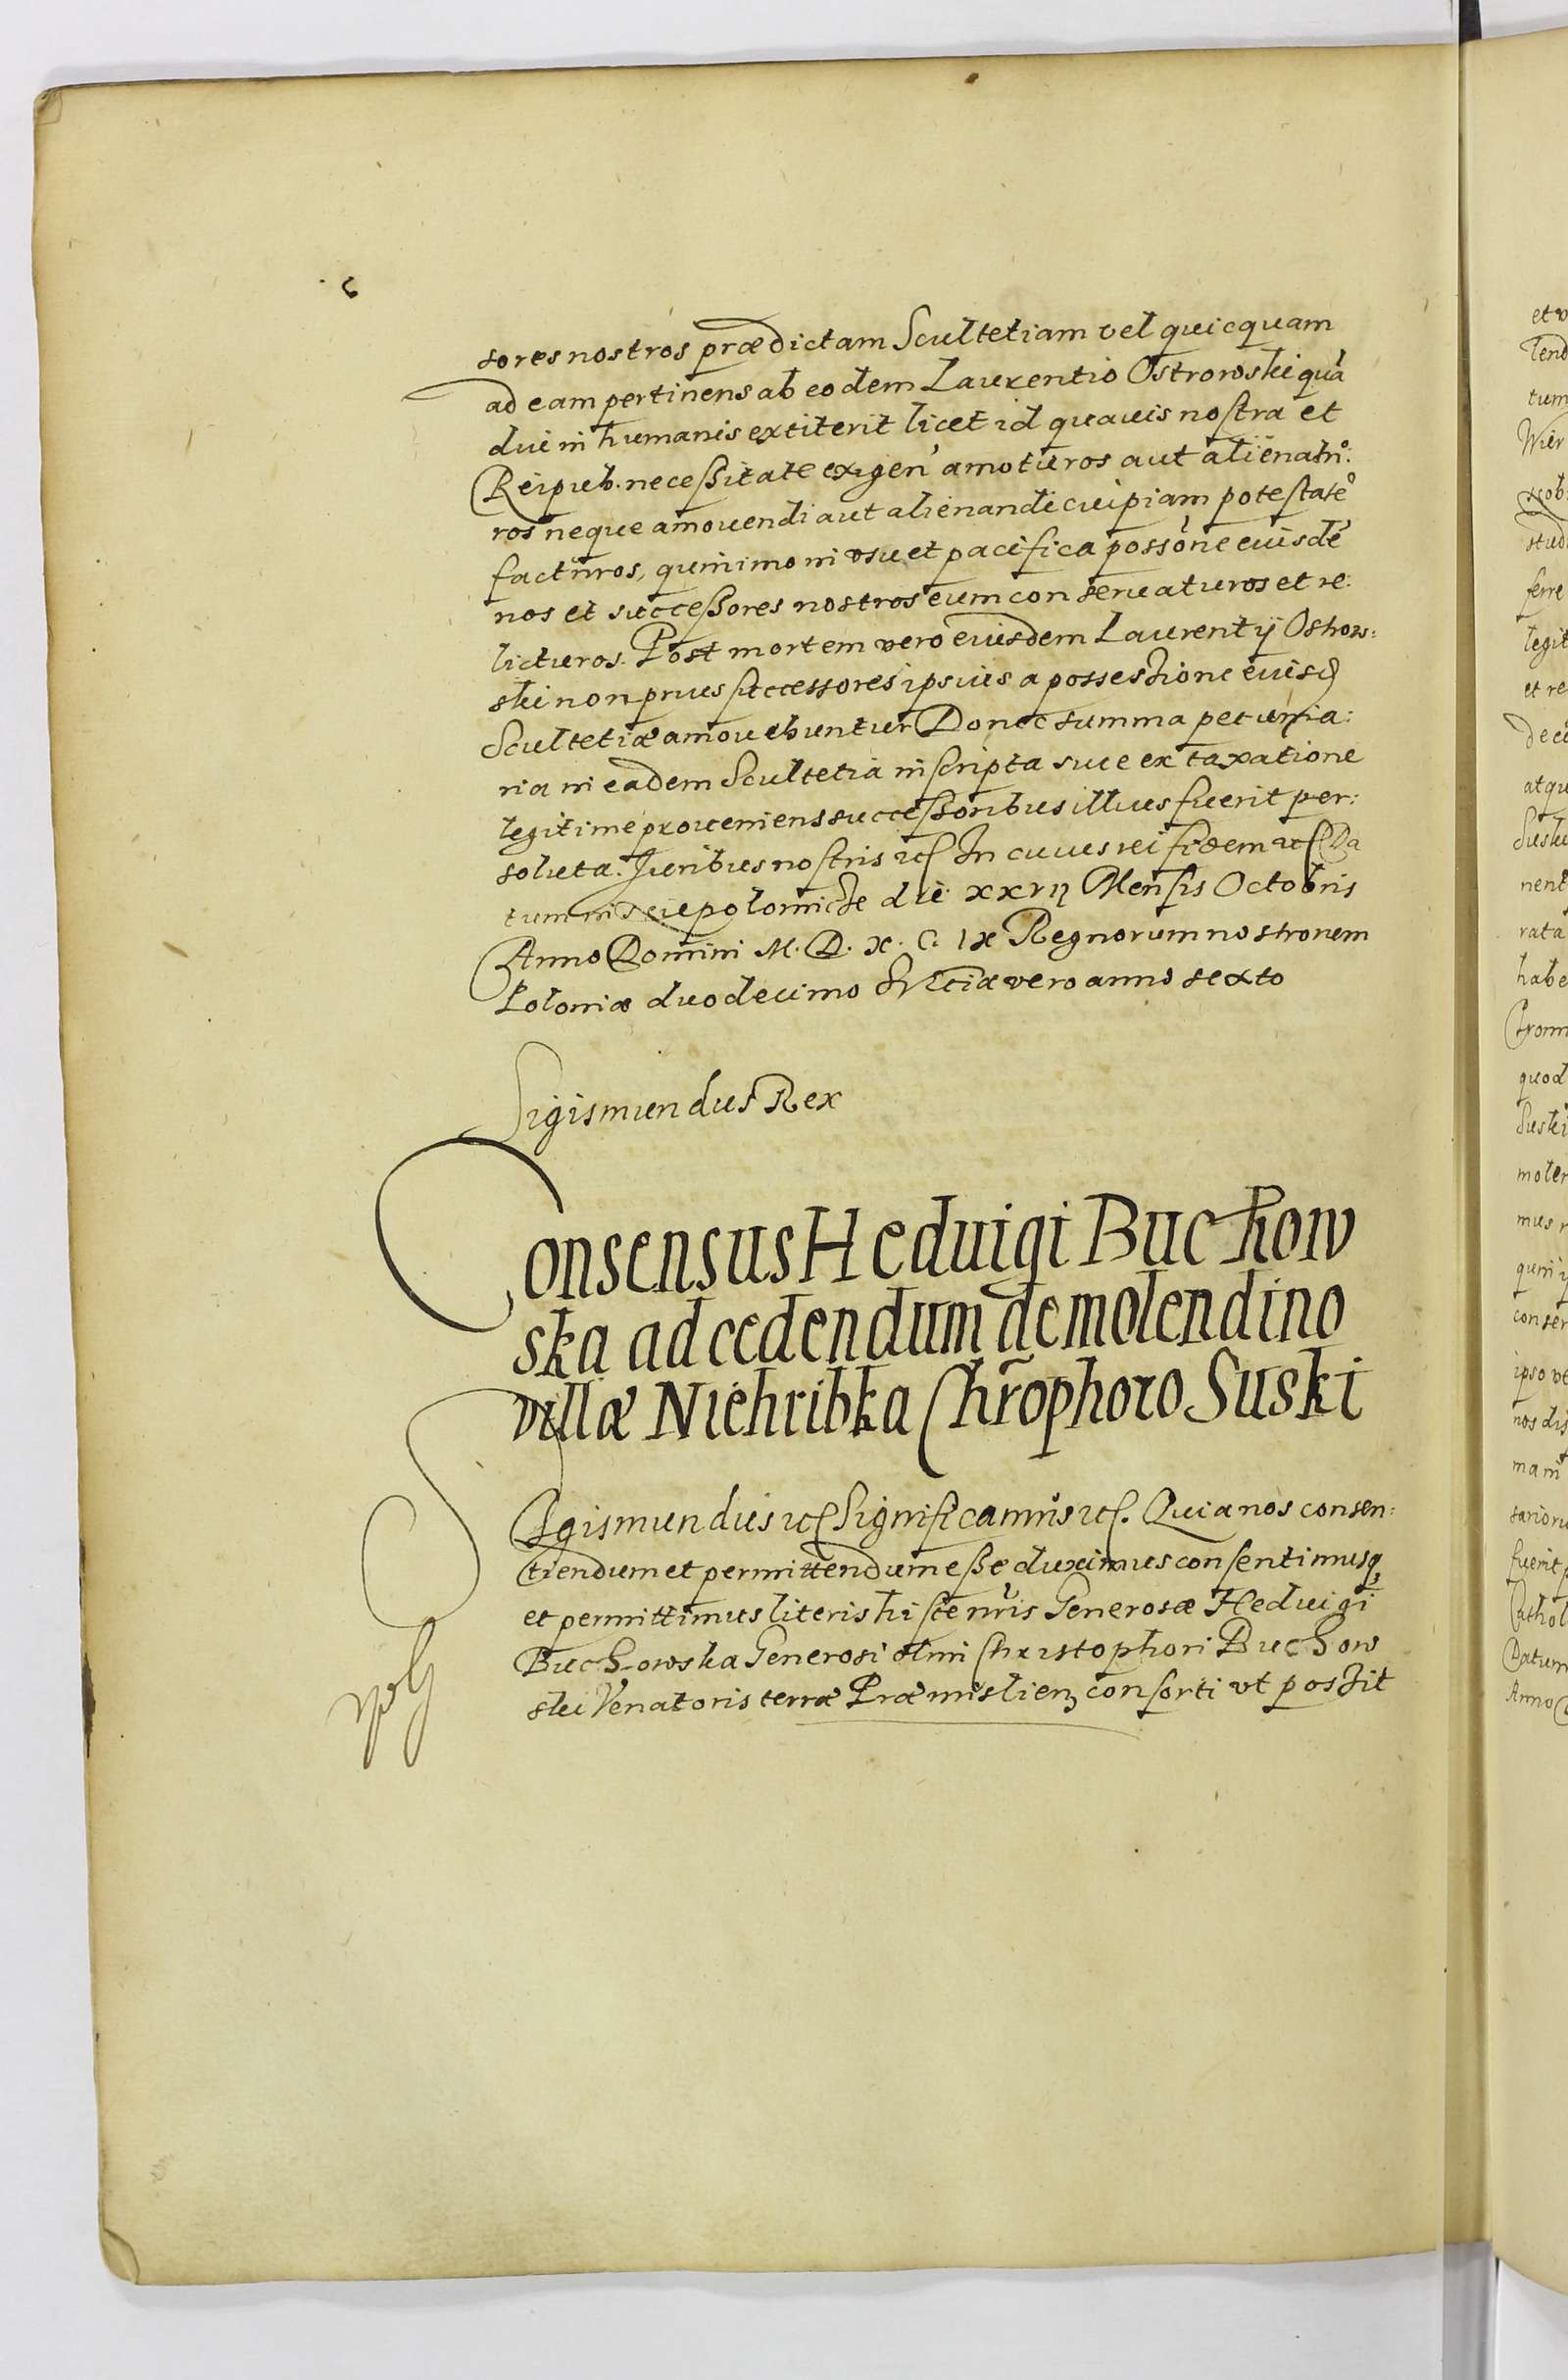 6
sores nostros prædictam Scultetiam vel quicquam
ad eam pertinens ab eodem Laurentio Ostrowski quã
diu in humanis extiterit licet id quavis nostra et
Reipub. necessitate exigen̄ amoturos aut alienatu:
ros neque amovendi aut alienandi cuipiam potestatē
facturos, quinimo in usu et pacifica possōne eiusdē
nos et successores nostros eum conservaturos et re:
licturos. Post mortem vero eiusdem Laurentij Ostrow:
ski non prius successores ipsius a possessione eiusd
Scultetiæ amovebuntur Donec summa pecunia:
ria in eadem Scultetia inscripta sive ex taxatione
legitime proveniens successoribus illius fuerit per:
soluta. Juribus nostris etc In cuius rei fidem etc Da
tum in Niepolomicze die XXVII Mensis Octobris
Anno Domini M. D. X. C. IX Regnorum nostrorum
Poloniæ duodecimo Sveciæ vero anno sexto
Sigismundus Rex
Consensus Heduigi Buchow
ska ad cedendum de molendino
villæ Niehribka Chrõphoro Suski
Sigismundus etc Significamus etc. Quia nos consen:
tiendum et permittendum esse duximus consentimusq
et permittimus literis hisce nr̃is Generosæ Heduigi
Buchowska Generosi olim Christophori Buchow
ski Venatoris terræ Præmislien consorti ut possit